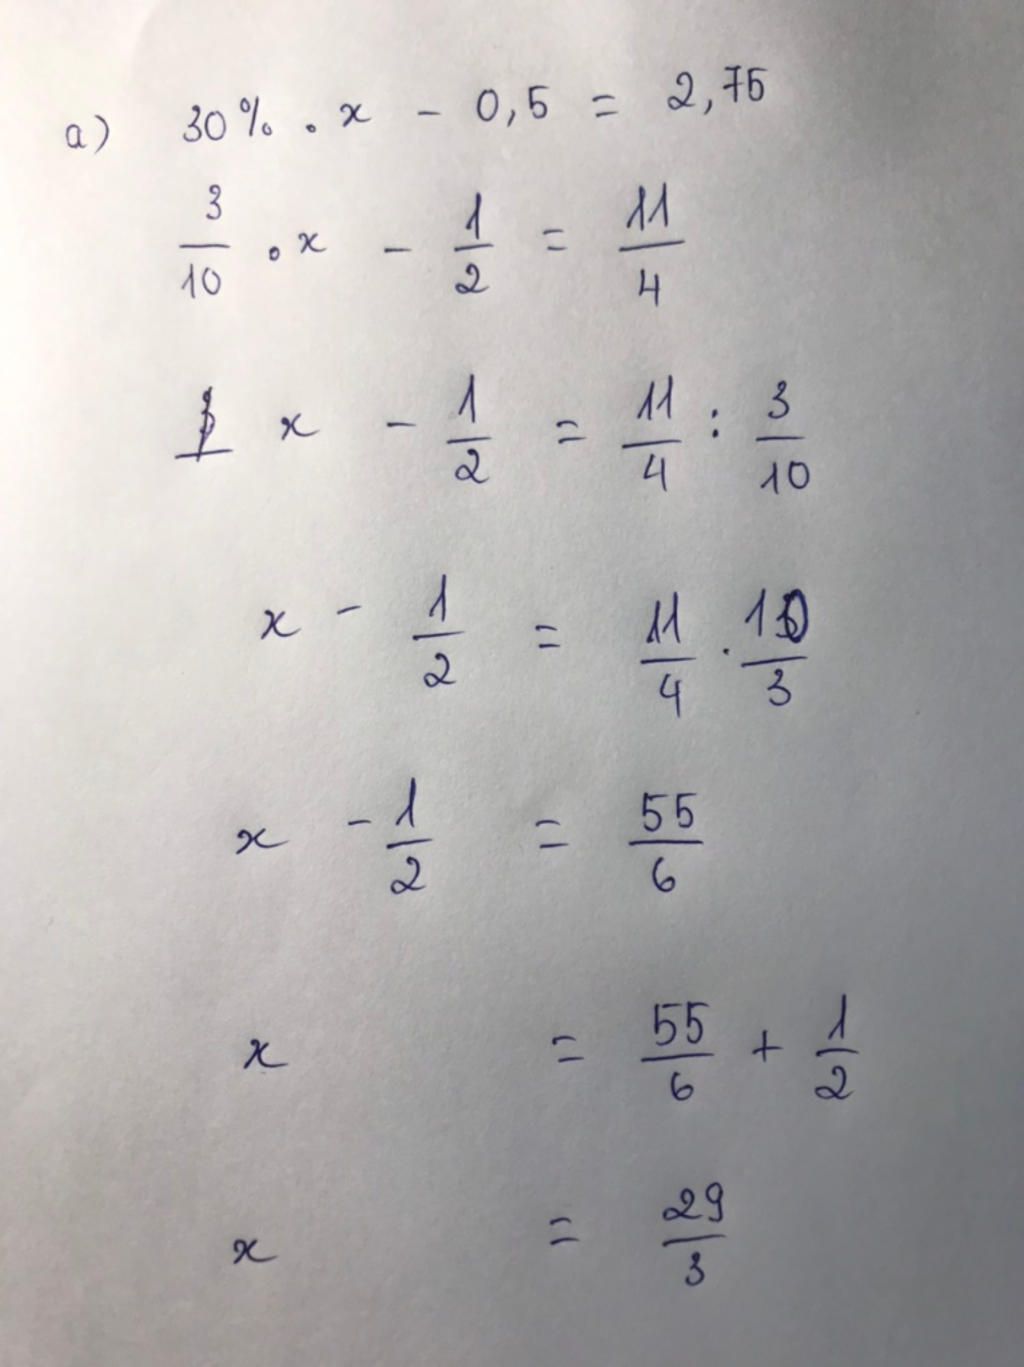 a) 30% . x - 0,5 = 2,75
3/10 . x - 1/2 = 11/4
x - 1/2 = 11/4 : 3/10
x - 1/2 = 11/4 . 10/3
x - 1/2 = 55/6
x = 55/6 + 1/2
x = 29/3